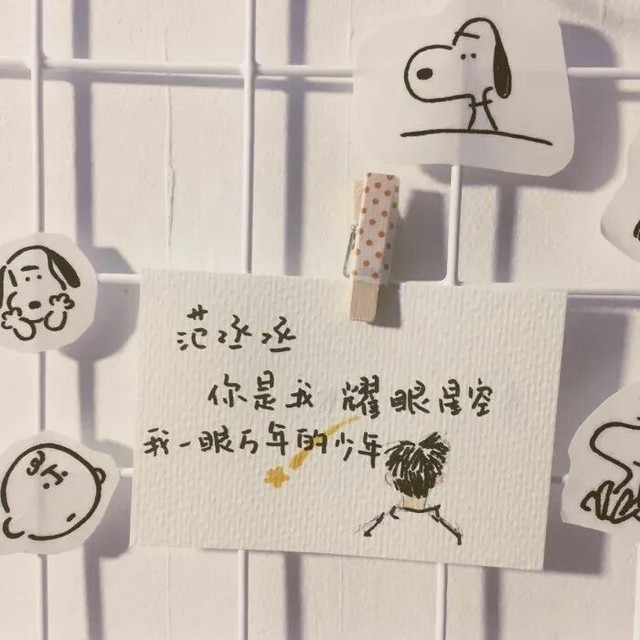 范丞丞
你是我 耀眼星空
我一眼万年的少年